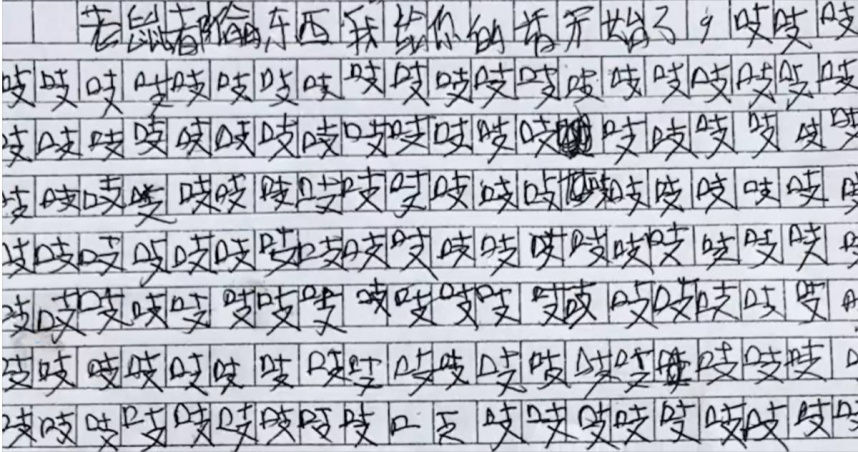 老鼠都偷东西我给你们看开始了，吱吱吱
吱吱吱吱吱吱吱吱吱吱吱吱吱吱吱吱吱吱吱吱
吱吱吱吱吱吱吱吱吱吱吱吱吱吱吱吱吱吱吱
吱吱吱吱吱吱吱吱吱吱吱吱吱吱吱吱吱吱吱
吱吱吱吱吱吱吱吱吱吱吱吱吱吱吱吱吱吱吱
吱吱吱吱吱吱吱吱吱吱吱吱吱吱吱吱吱吱吱
吱吱吱吱吱吱吱吱吱吱吱吱吱吱吱吱吱吱
吱吱吱吱吱吱吱吱吱口支吱吱吱吱吱吱吱吱吱